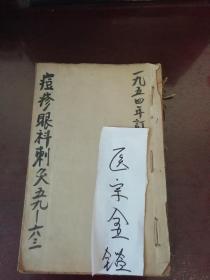 一九五四年訂
痘疹眼科刺灸五九—六三
医宗金鑑